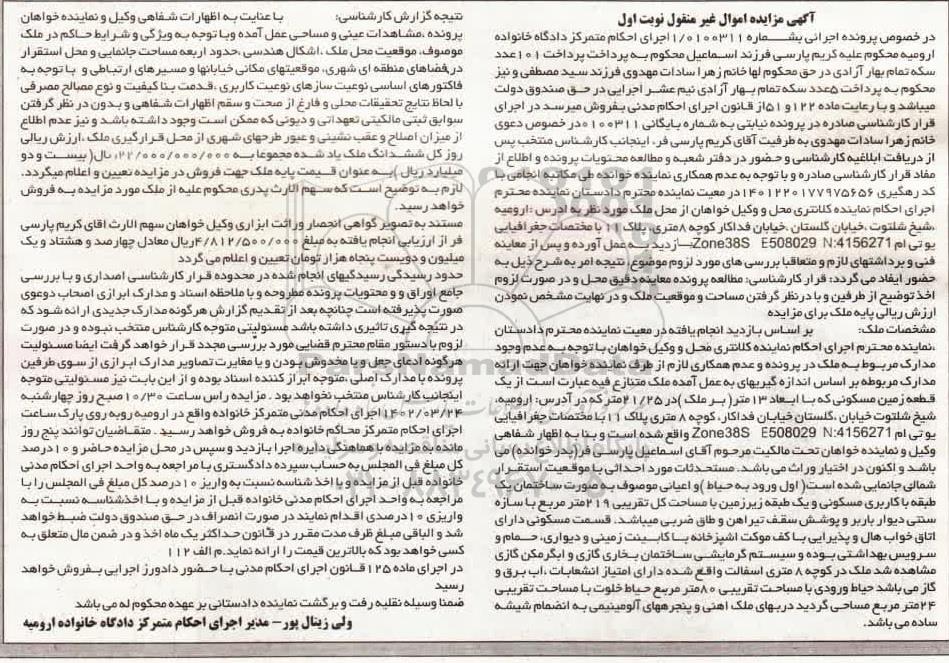 آگهی مزایده اموال غیر منقول نوبت اول
در خصوص پرونده اجرائی بشماره ۱/۰۱۰۰۳۱۱اجرای احکام متمرکز دادگاه خانواده
ارومیه محکوم علیه کریم پارسی فرزند اسماعیل محکوم به پرداخت پرداخت ۱۰۱عدد
سکه تمام بهار آزادی در حق محکوم لها خانم زهرا سادات مهدوی فرزند سید مصطفی و نیز
محکوم به پرداخت ۵عدد سکه تمام بهار آزادی نیم عشر اجرایی در حق صندوق دولت
میباشد و با رعایت ماده ۱۲۲و۵۱از قانون اجرای احکام مدنی بفروش میرسد در اجرای
قرار کارشناسی صادره در پرونده نیابتی به شماره بایگانی ۰۱۰۰۳۱۱در خصوص دعوی
خانم زهرا سادات مهدوی به طرفیت آقای کریم پارسی فر، اینجانب کارشناس منتخب پس
از دریافت ابلاغیه کارشناسی و حضور در دفتر شعبه و مطالعه محتویات پرونده و اطلاع از
مفاد قرار کارشناسی صادره و با توجه به عدم همکاری نماینده خوانده طی مکاتبه انجامی با
کد رهگیری ۱۴۰۱۲۲۰۱۷۷۹۷۵۶۵۶ در معیت نماینده محترم دادستان نماینده محترم
اجرای احکام نماینده کلانتری محل و وکیل خواهان از محل ملک مورد نظر به آدرس : ارومیه
،شیخ شلتوت ،خیابان گلستان ،خیابان فداکار کوچه ۸متری، پلاک ۱۱ با مختصات جغرافیایی
یو تی ام Zone38S E508029 N:4156271بازدید به عمل آورده و پس از معاینه
فنی و برداشتهای لازم و متعاقبا بررسی های مورد لزوم موضوع، نتیجه امر به شرح ذیل به
حضور ایفاد می گردد: قرار کارشناسی: مطالعه پرونده معاینه دقیق محل و در صورت لزوم
اخذ توضیح از طرفین و با در نظر گرفتن مساحت و موقعیت ملک و در نهایت مشخص نمودن
ارزش ریالی پایه ملک برای مزایده
مشخصات ملک: بر اساس بازدید انجام یافته در معیت نماینده محترم دادستان
،نماینده محترم اجرای احکام نماینده کلانتری محل و وکیل خواهان با توجه به عدم وجود
مدارک مربوط به ملک در پرونده و عدم همکاری لازم از طرف نماینده خواهان جهت ارائه
مدارک مربوطه بر اساس اندازه گیریهای به عمل آمده ملک متنازع فیه عبارت است از یک
قطعه زمین مسکونی که با ابعاد ۱۳متر( بر ملک )در ۲۱/۲۵متر که در آدرس: ارومیه،
شیخ شلتوت خیابان ،گلستان خیابان فداکار، کوچه ۸ متری پلاک ۱۱با مختصات جغرافیایی
یو تی ام Zone38S E508029 N:4156271 واقع شده است و بنا به اظهار شفاهی
وکیل و نماینده خواهان تحت مالکیت مرحوم آقای اسماعیل پارسی فر(پدر خوانده) می
باشد و اکنون در اختیار وراث می باشد. مستحدثات مورد احداثی با موقعیت استقرار
شمالی جانمایی شده است( اول ورود به حیاط )و اعیانی موصوف به صورت ساختمان یک
طبقه با کاربری مسکونی و یک طبقه زیرزمین با مساحت کل تقریبی ۲۱۹متر مربع با سازه
سنتی دیوار باربر و پوشش سقف تیراهن و طاق ضربی میباشد. قسمت مسکونی دارای
اتاق خواب هال و پذیرایی با کف موکت اشپزخانه با کابینت زمینی و دیواری، حمام و
سرویس بهداشتی بوده و سیستم گرمایشی ساختمان بخاری گازی و ابگرمکن گازی
مشاهده شد ملک در کوچه ۸ متری اسفالت واقع شده دارای امتیاز انشعابات ،اب برق و
گاز می باشد حیاط ورودی با مساحت تقریبی ۸۰متر مربع حیاط خلوت با مساحت تقریبی
۲۴متر مربع مساحی گردید دربهای ملک اهنی و پنجرههای آلومینیمی به انضمام شیشه
ساده می باشد.
نتیجه گزارش کارشناسی: با عنایت به اظهارات شفاهی وکیل و نماینده خواهان
پرونده ،مشاهدات عینی و مساحی عمل آمده وبا توجه به ویژگی و شرایط حاکم در ملک
موصوف، موقعیت محل ملک ،اشکال هندسی ،حدود اربعه مساحت جانمایی و محل استقرار
در فضاهای منطقه ای شهری، موقعیتهای مکانی خیابانها و مسیرهای ارتباطی و با توجه به
فاکتورهای اساسی نوعیت سازهای نوعیت کاربری ،قدمت بنا کیفیت و نوع مصالح مصرفی
با لحاظ نتایج تحقیقات محلی و فارغ از صحت و سقم اظهارات شفاهی و بدون در نظر گرفتن
سوابق ثبتی مالکیتی تعهداتی و دیونی که ممکن است وجود داشته باشد و نیز عدم اطلاع
از میزان اصلاح و عقب نشینی و عبور طرحهای شهری از محل قرارگیری ملک ،ارزش ریالی
روز کل ششدانگ ملک یاد شده مجموعا به ۲۲/۰۰۰/۰۰۰/۰۰۰ریال( بیست و دو
میلیارد ریال )به عنوان قیمت پایه ملک جهت فروش در مزایده تعیین و اعلام میگردد.
لازم به توضیح است که سهم الارث پدری محکوم علیه از ملک مورد مزایده به فروش
خواهد رسید.
مستند به تصویر گواهی انحصار وراثت ابرازی وکیل خواهان سهم الارث اقای کریم پارسی
فر از ارزیابی انجام یافته به مبلغ ۴/۸۱۲/۵۰۰/۰۰۰ریال معادل چهارصد و هشتاد و یک
میلیون و دویست پنجاه هزار تومان تعیین و اعلام می گردد
حدود رسیدگی رسیدگیهای انجام شده در محدوده قرار کارشناسی اصداری و با بررسی
جامع اوراق و و محتویات پرونده مطروحه و با ملاحظه اسناد و مدارک ابرازی اصحاب دوعوی
صورت پذیرفته است چنانچه بعد از تقدیم گزارش هرگونه مدارک جدیدی ارائه شود که
در نتیجه گیری تاثیری داشته باشد مسئولیتی متوجه کارشناس منتخب نبوده و در صورت
لزوم با دستور مقام محترم قضایی مورد بررسی مجدد قرار خواهد گرفت ایضا مسئولیت
هرگونه ادعای جعل و یا مخدوش بودن و یا مغایرت تصاویر مدارک ابرازی از سوی طرفین
پرونده با مدارک اصلی ،متوجه ابراز کننده اسناد بوده و از این بابت نیز مسئولیتی متوجه
اینجانب کارشناس منتخب نخواهد بود . مزایده راس ساعت ۱۰/۳۰ صبح روز چهارشنبه
۱۴۰۲/۰۳/۲۴ اجرای احکام مدنی متمرکز خانواده واقع در ارومیه روبه روی پارک ساعت
اجرای احکام متمرکز محاکم خانواده به فروش خواهد رسید . متقاضیان توانند پنج روز
مانده به مزایده با هماهنگی دایره اجرا بازدید و سپس در محل مزایده حاضر و ۱۰ درصد
کل مبلغ فی المجلس به حساب سپرده دادگستری با مراجعه به واحد اجرای احکام مدنی
خانواده قبل از مزایده و یا اخذ شناسه نسبت به واریز ۱۰درصد کل مبلغ فی المجلس را با
مراجعه به واحد اجرای احکام مدنی خانواده قبل از مزایده و با اخذشناسه نسبت به
واریزی ۱۰درصدی اقدام نمایند در صورت انصراف در حق صندوق دولت ضبط خواهد
شد و الباقی مبلغ ظرف مدت مقرر در قانون حداکثر یک ماه اخذ و در ضمن مال متعلق به
کسی خواهد بود که بالاترین قیمت را ارائه نماید.م الف ۱۱۲
در اجرای ماده ۱۲۵قانون اجرای احکام مدنی با حضور دادورز اجرایی بفروش خواهد
رسید
ضمنا وسیله نقلیه رفت و برگشت نماینده دادستانی بر عهده محکوم له می باشد
ولی زینال پور– مدیر اجرای احکام متمرکز دادگاه خانواده ارومیه
ParsNamadData